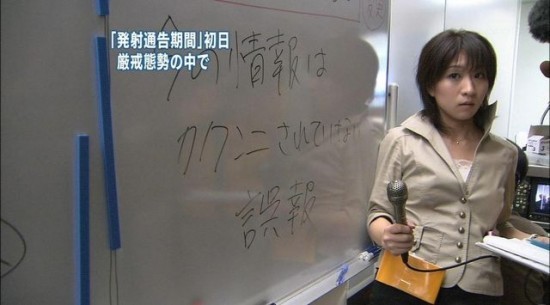 「発射通告期間」初日
厳戒態勢の中で
情報は
カクニンされていません
誤報